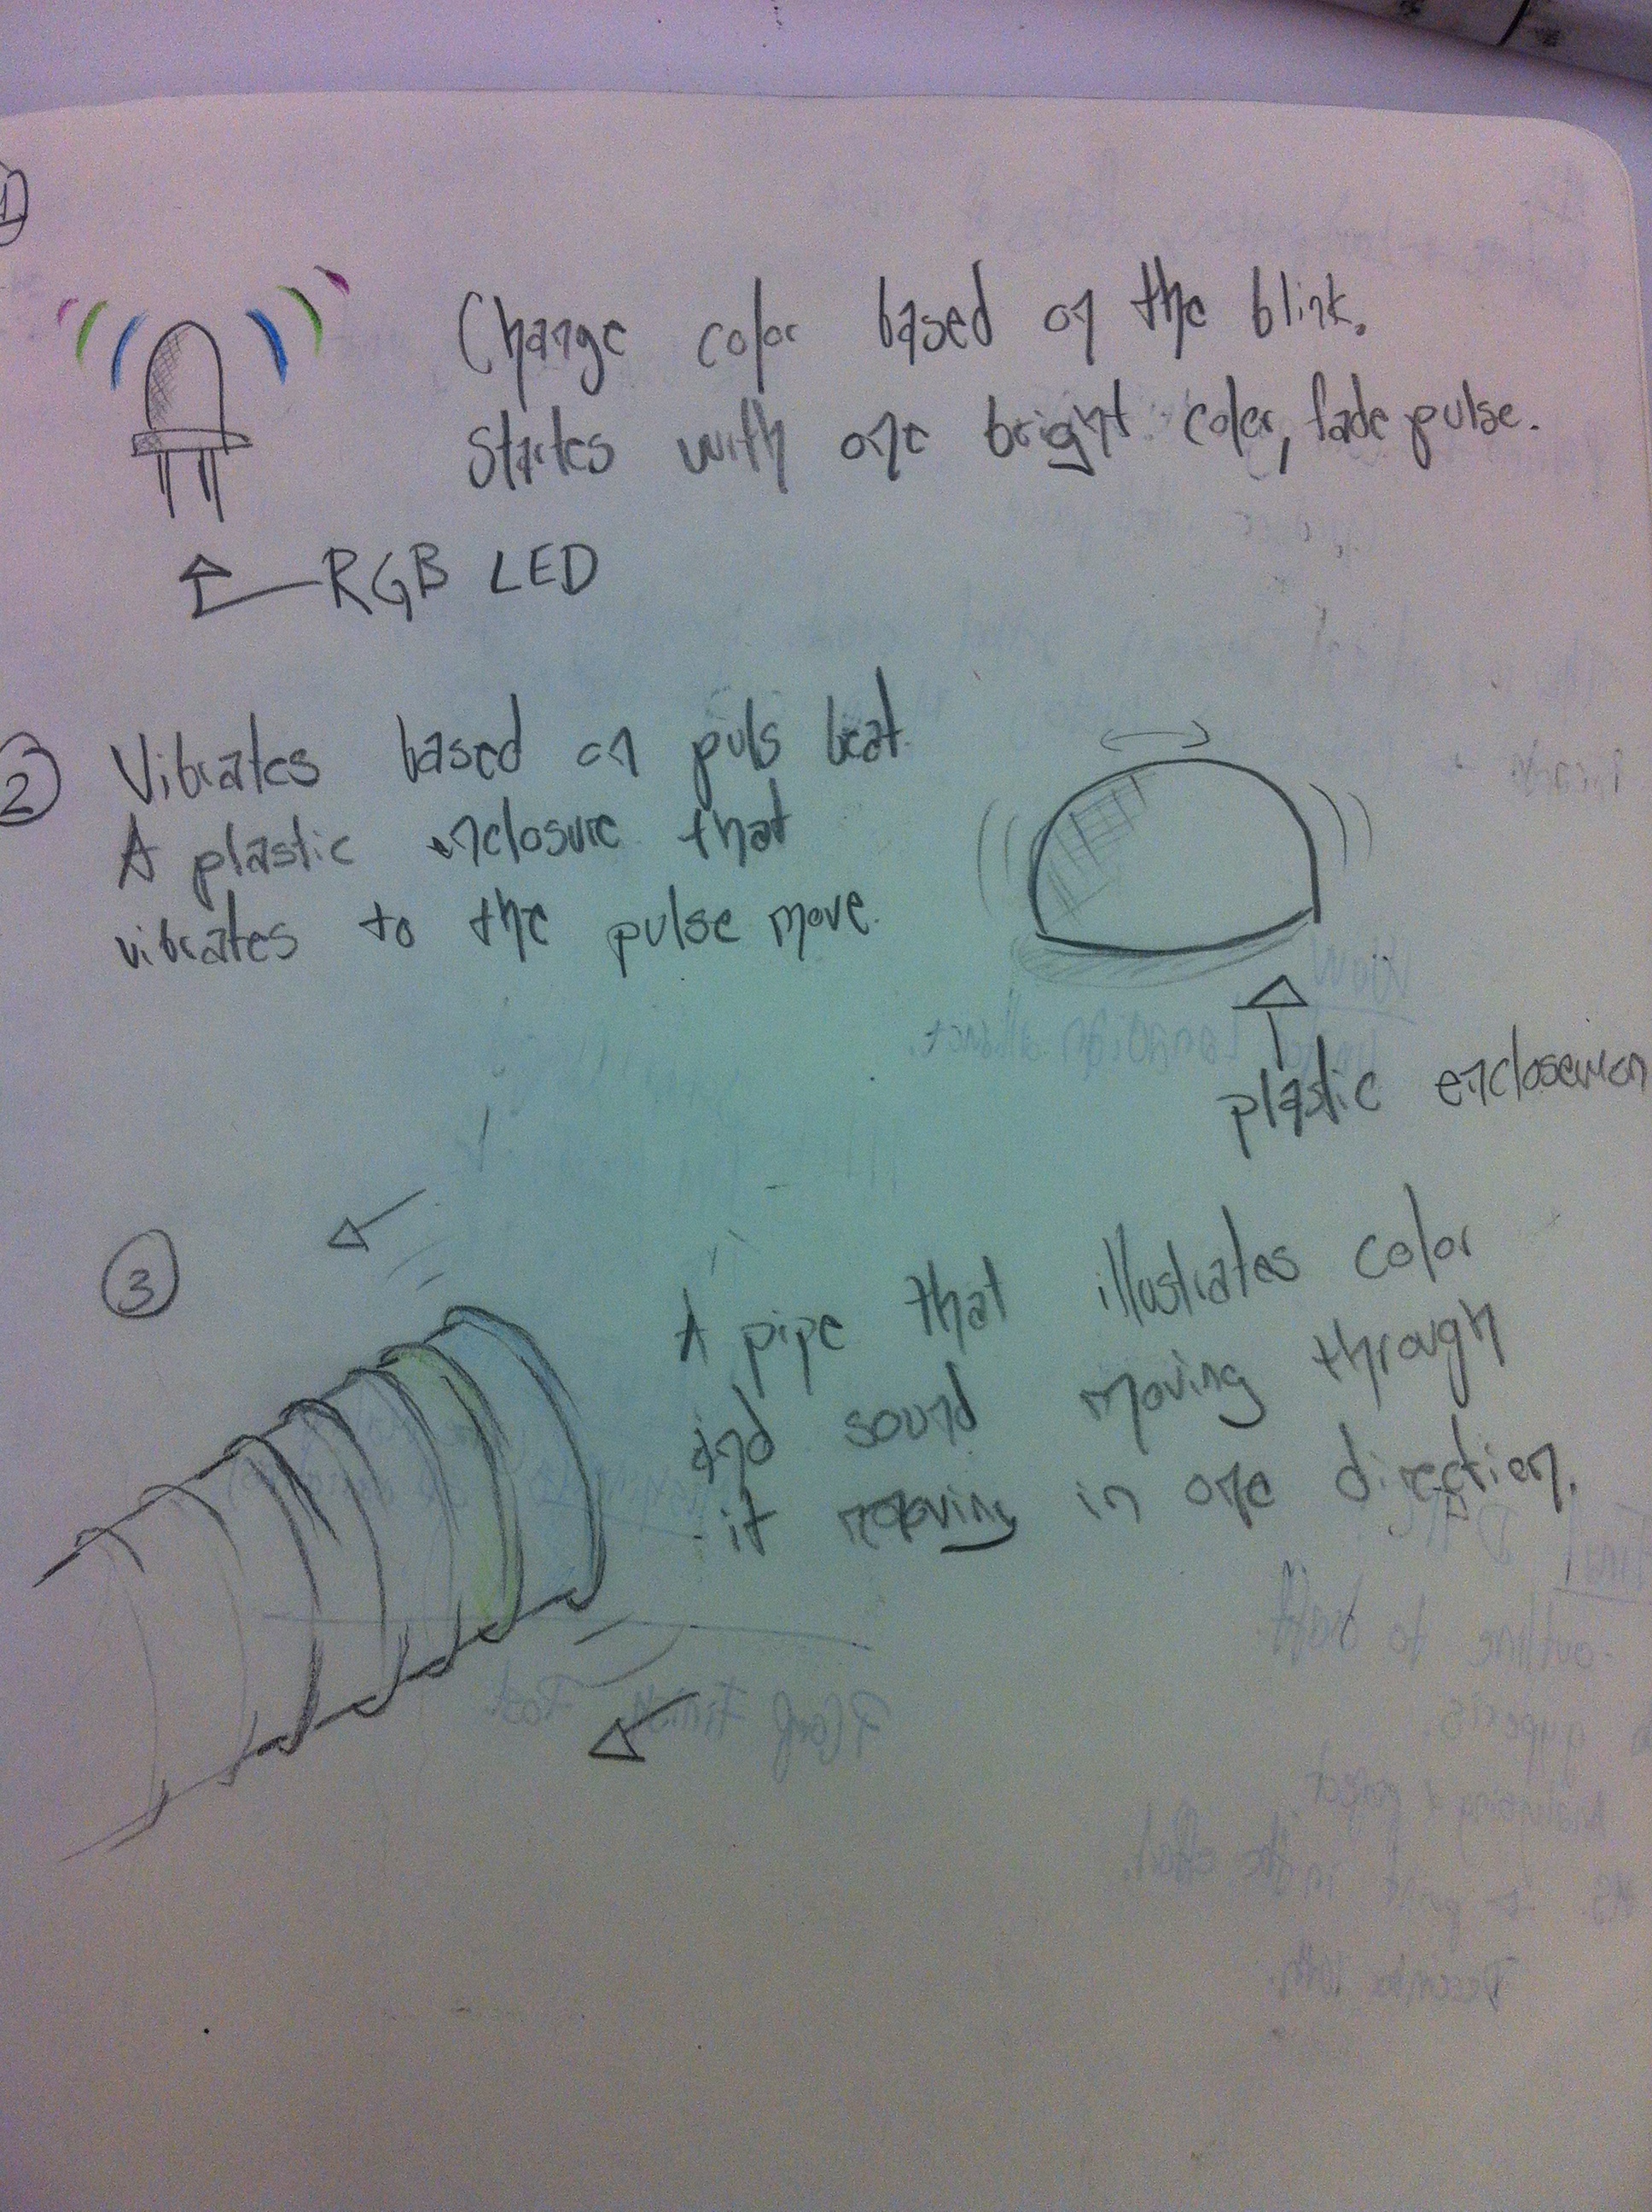 1
Change color based on the blink.
Startes with one bright color, fade pulse.
RGB LED
2 Vibrates based on puls beat.
A plastic enclosure that
vibrates to the pulse move.
plastic
3
A pipe that illustrates color
and sound moving through
it moving in one direction.
View
outline to draft
December 10th.